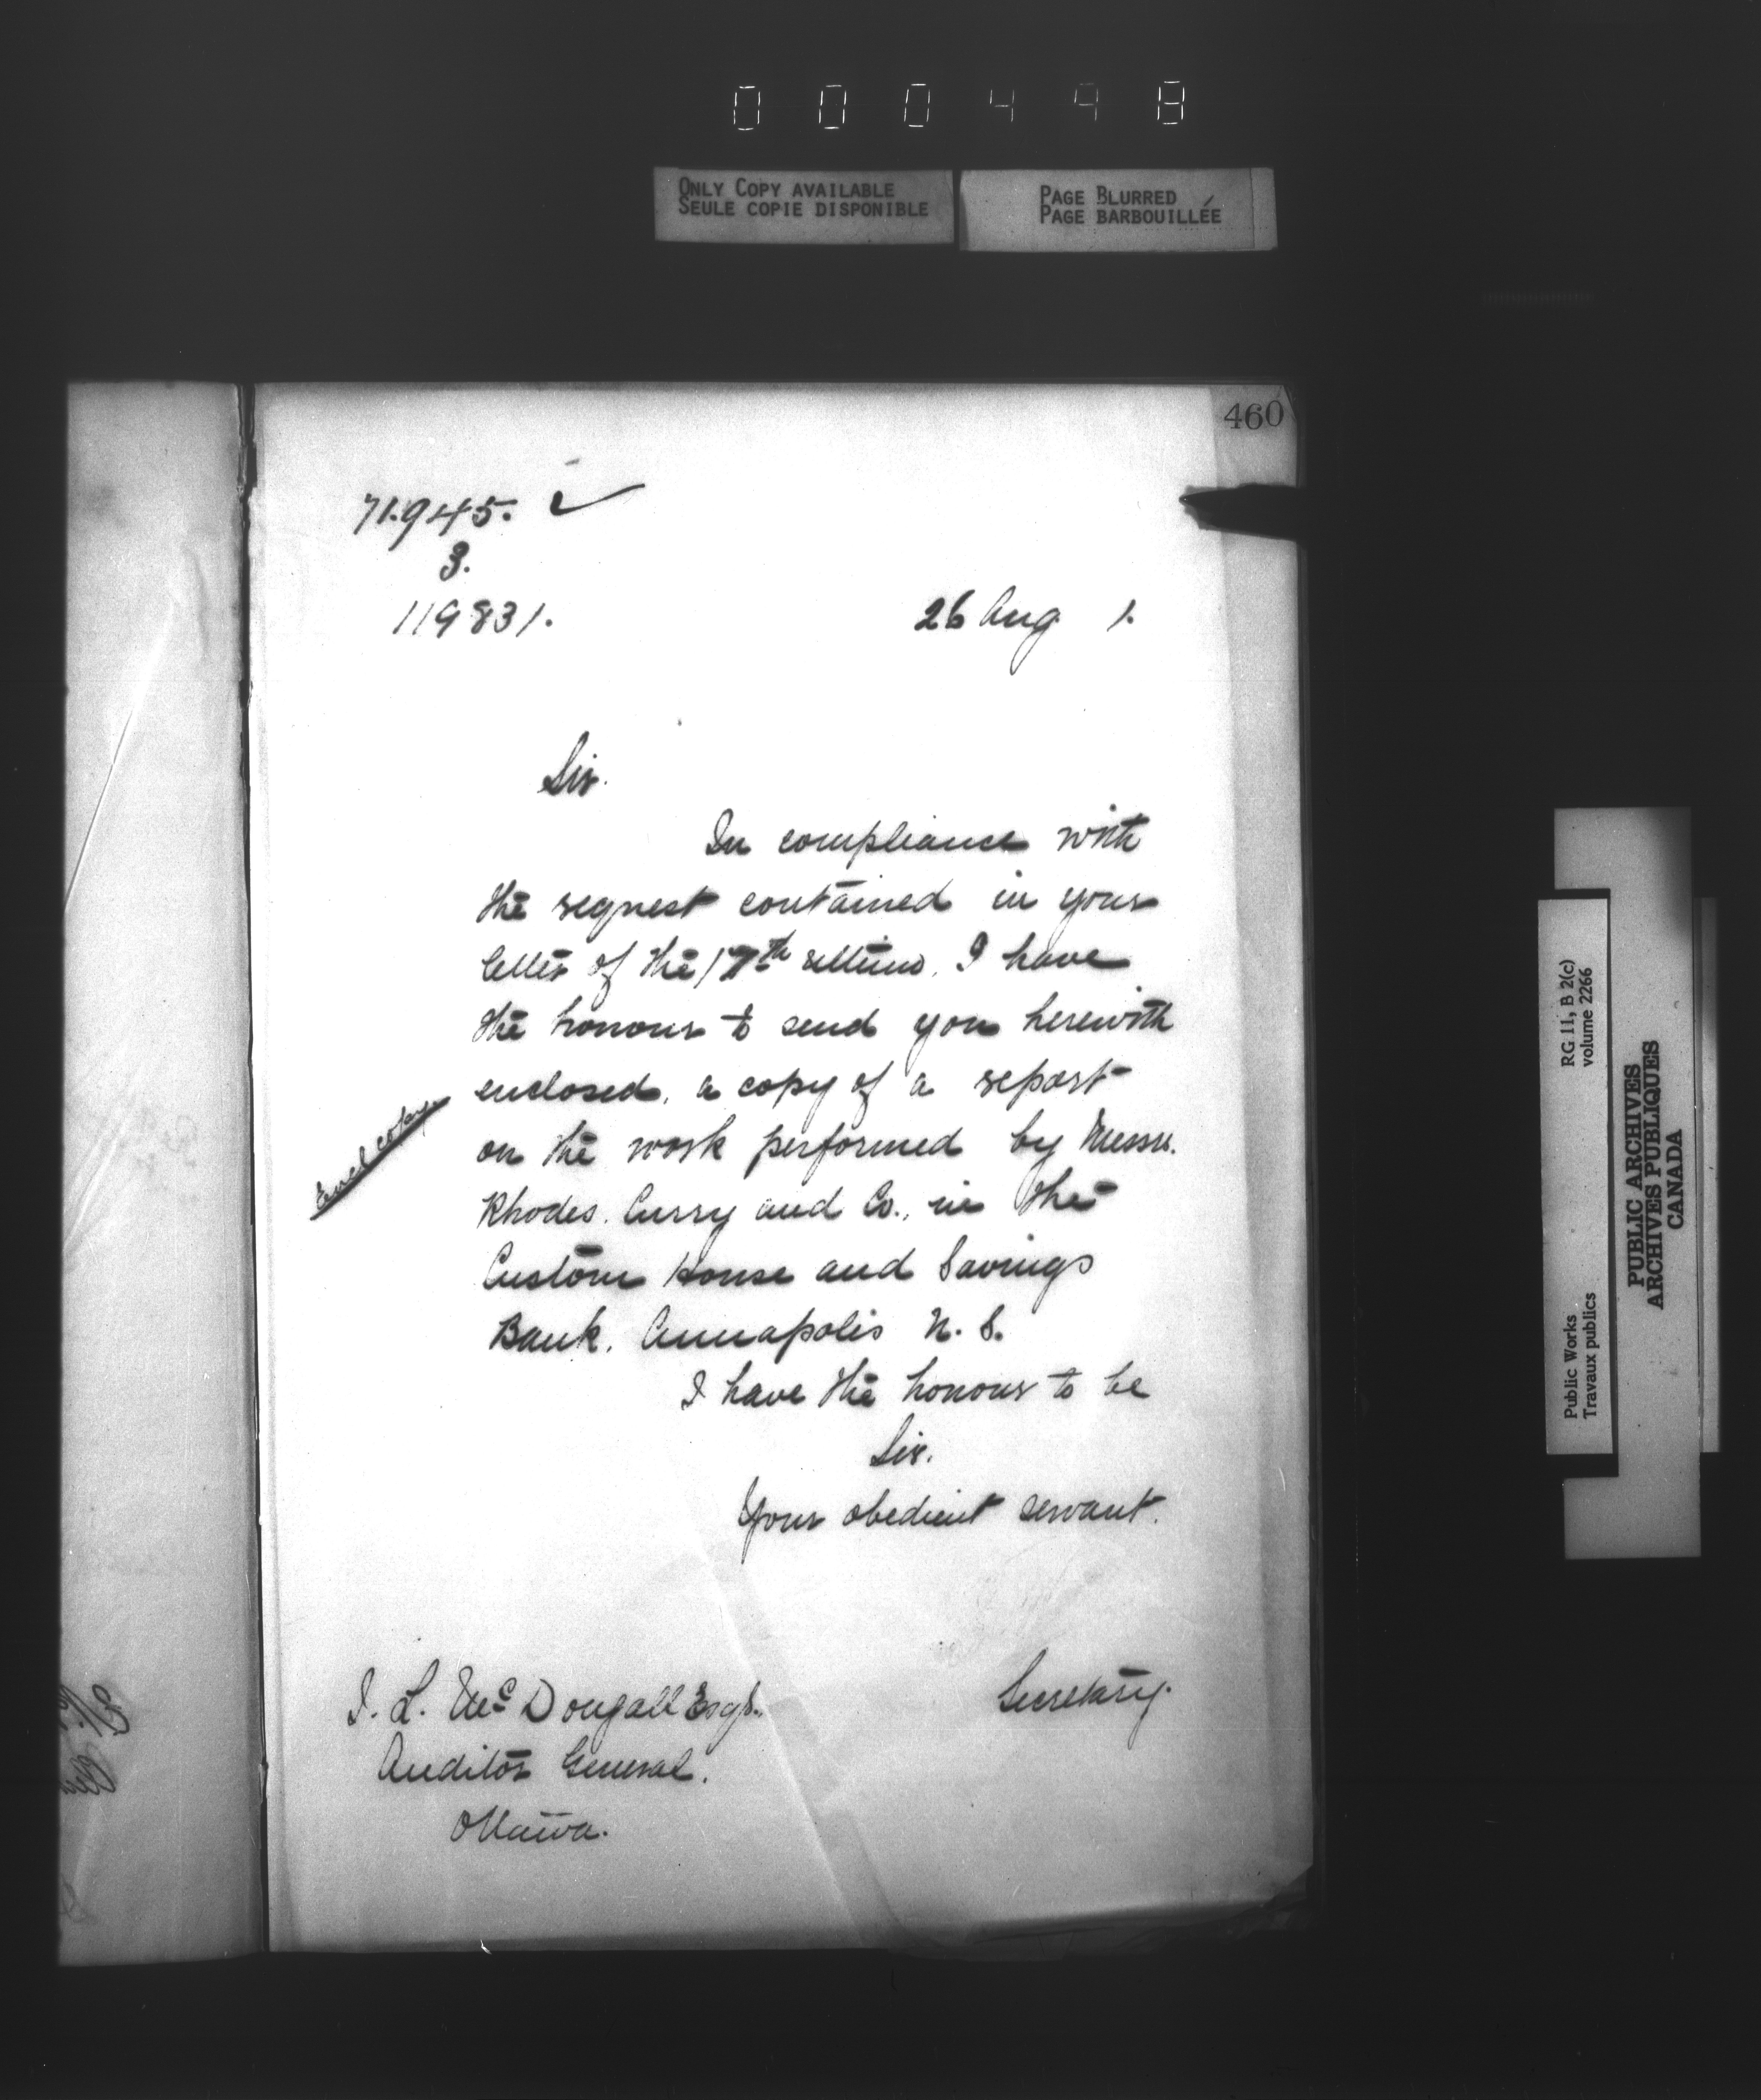 000448
ONLY COPY AVAILABLE
SEULE COPIE DISPONIBLE
PAGE BLURRED
PAGE BARBOUILLÉE
460
71.945. ✓
3.
119831.
26 Aug 1.
Sir.
In compliance with
the request contained in your
letter of the 17th ultimo, I have
the honour to send you herewith
enclosed, a copy of a report
on the work performed by Messrs.
Rhodes, Curry and Co., in the
Custom House and Savings
Bank, Annapolis N. S.
Encl copy
I have the honour to be
Sir.
Your obedient servant.
Secretary.
J. L. McDougall Esqr.,
Auditor General.
Ottawa.
Public Works
Travaux publics
RG 11, B 2(c)
volume 2266
PUBLIC ARCHIVES
ARCHIVES PUBLIQUES
CANADA